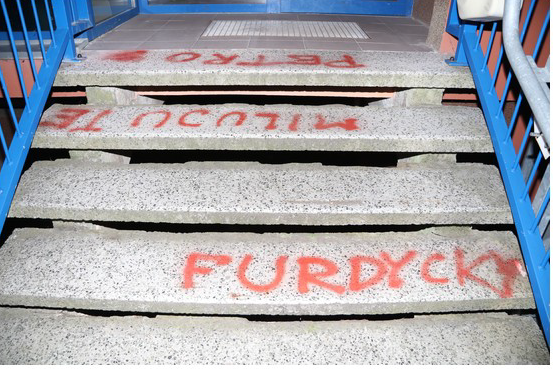 PETRO
MILUJU TĚ
FURDYCKY